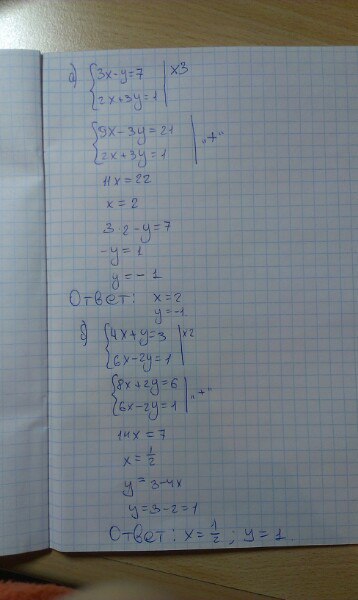 а) {3x-y=7 | x3
{2x+3y=1
{9x-3y=21
{2x+3y=1 | „+“
11x=22
x=2
3·2-y=7
-y=1
y=-1
Ответ: x=2
y=-1
б) {4x+y=3 | x2
{6x-2y=1
{8x+2y=6
{6x-2y=1 | „+“
14x=7
x=1/2
y=3-4x
y=3-2=1
Ответ: x=1/2; y=1.